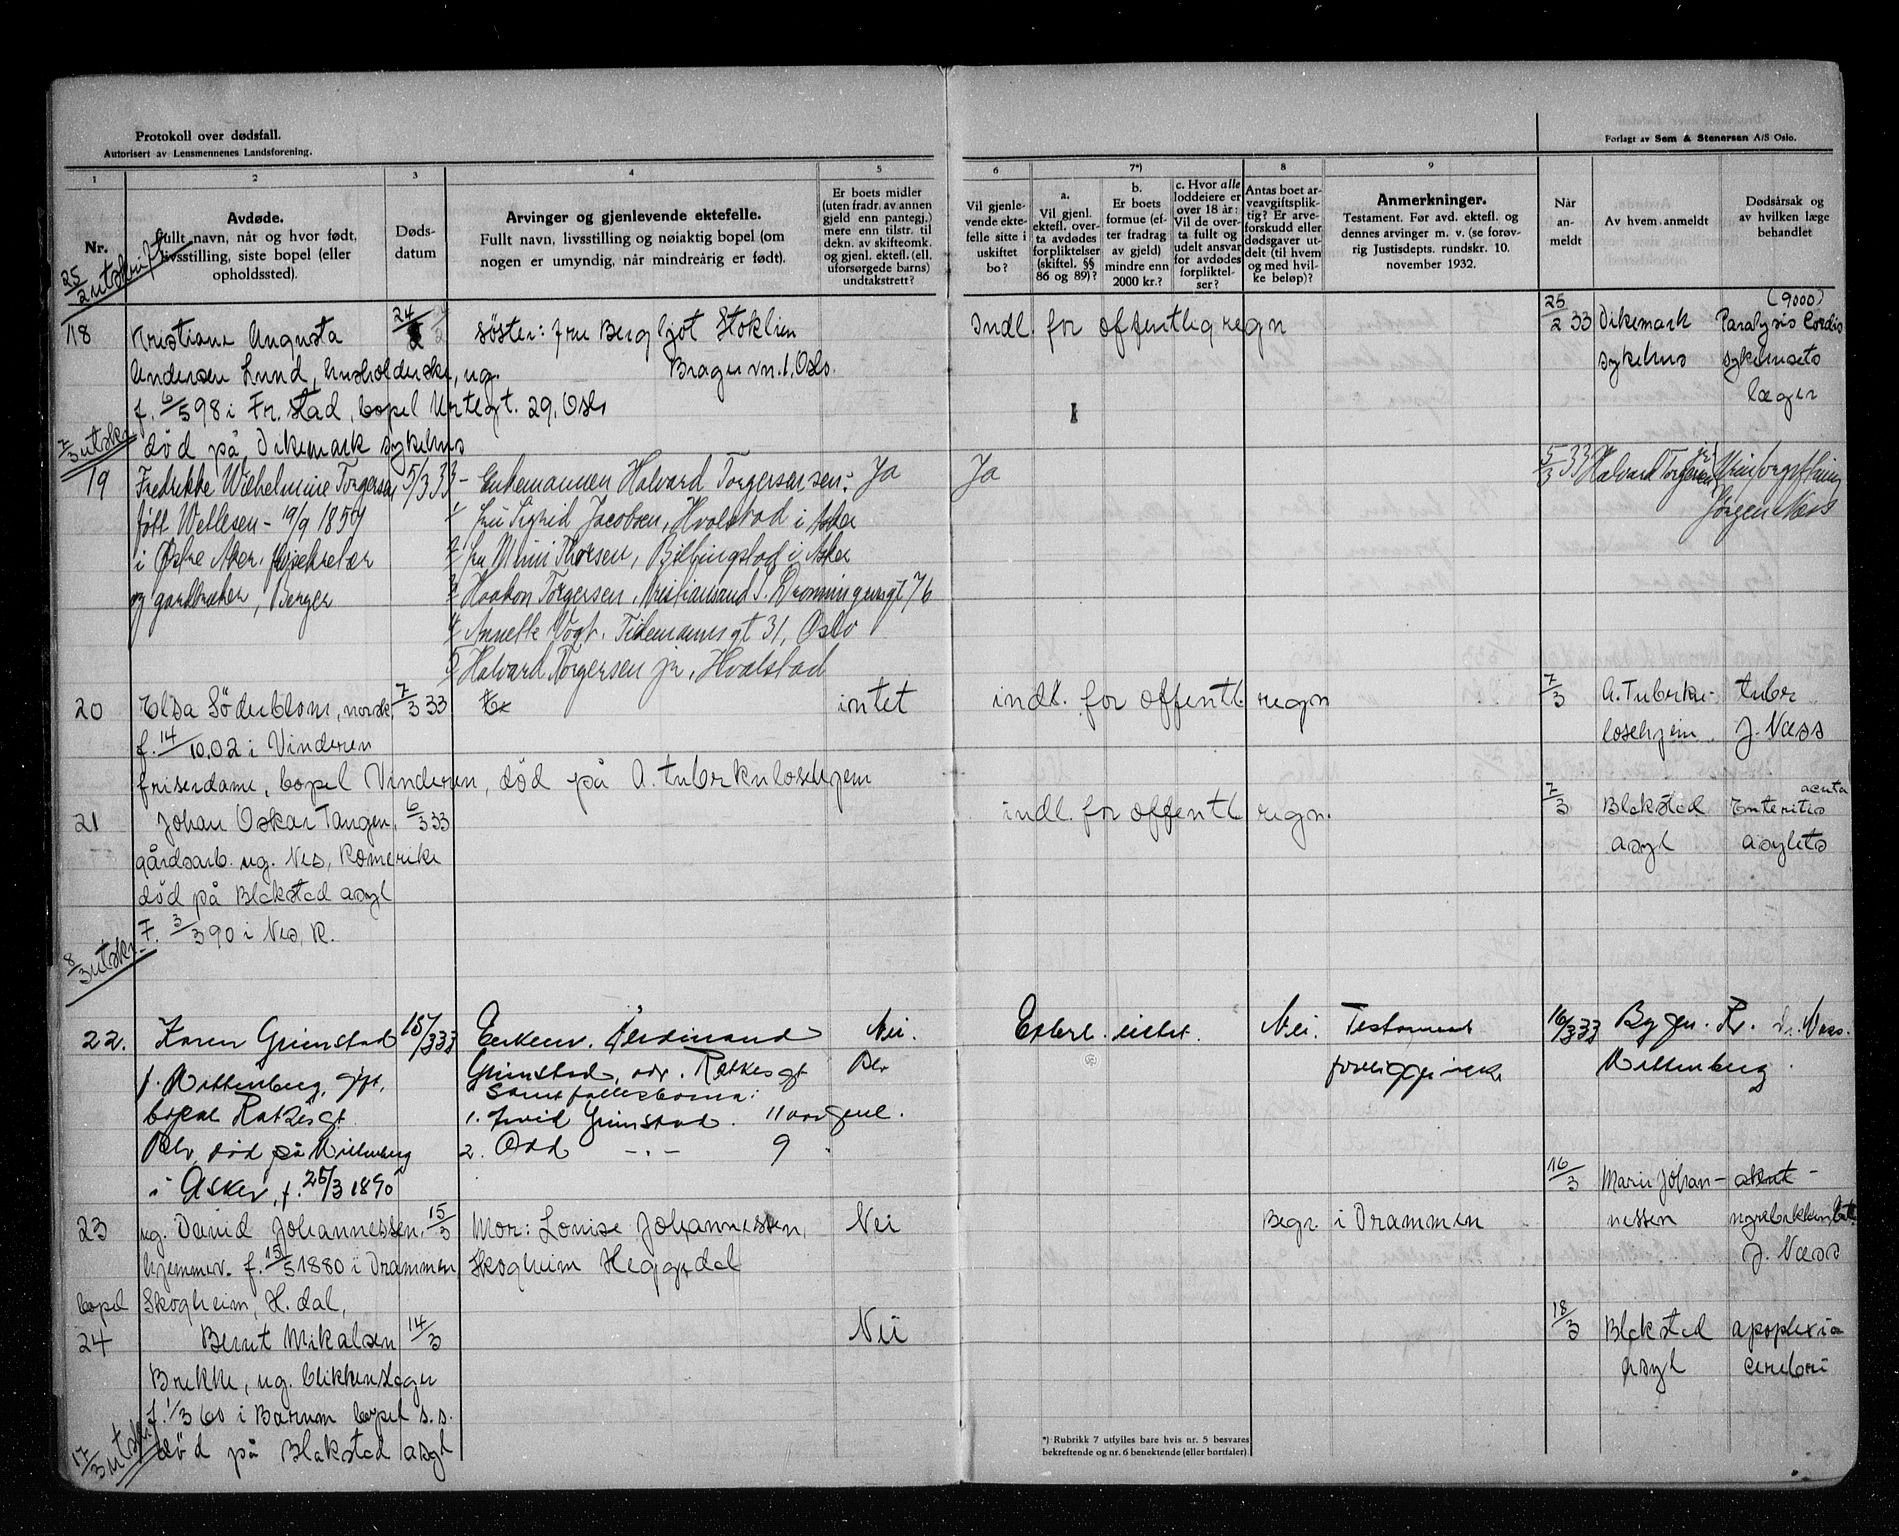 Protokoll over dødsfall.
Autorisert av Lensmennenes Landsforening.
Forlagt av Sem & Stenersen A/S Oslo.
1 2 3 4 5 6 7*) 8 9
Nr.
Avdøde.
Fullt navn, når og hvor født,
livsstilling, siste bopel (eller
opholdssted).
Døds-
datum
Arvinger og gjenlevende ektefelle.
Fullt navn, livsstilling og nøiaktig bopel (om
nogen er umyndig, når mindreårig er født).
Er boets midler
(uten fradr. av annen
gjeld enn pantegj.)
mere enn tilstr. til
dekn. av skifteomk.
og gjenl. ektefl. (ell.
uforsørgede barns)
undtakstrett?
Vil gjenle-
vende ekte-
felle sitte i
uskiftet
bo?
a.
Vil gjenl.
ektefl. over-
ta avdødes
forpliktelser
(skiftel. §§
86 og 89)?
b.
Er boets
formue (ef-
ter fradrag
av gjeld)
mindre enn
2000 kr.?
c. Hvor alle
loddeiere er
over 18 år:
Vil de over-
ta fullt og
udelt ansvar
for avdødes
forpliktel-
ser?
Antas boet ar-
veavgiftsplik-
tig? Er arve-
forskudd eller
dødsgaver ut-
delt (til hvem
og med hvil-
ke beløp)?
Anmerkninger.
Testament. Før avd. ektefl. og
dennes arvinger m. v. (se forøv-
rig Justisdepts. rundskr. 10.
november 1932.
Når
an-
meldt
Av hvem anmeldt
Dødsårsak og
av hvilken læge
behandlet
25/2 utskrift
18 Kristiane Augusta 24/2 søster: fru Bergljot Stoklien Indl. for offentlig regn 25/2 33 Dikemark (9000) Paralysis Cordis
Andersen Lund, husholderske, ug. Bragervn. 1. Oslo. sykehus sykehusets
f. 6/5 98 i Fr.stad, bopel Urtegt. 29, Oslo læger
død på Dikemark sykehus
7/3 utskr.
19 Fredrikke Wilhelmine Torgersen 5/3 33 - Enkemannen Halvard Torgersen: Ja Ja 5/3 33 Halvard Torgersen jr
født Wetlesen - 19/9 1857 1/ fru Sigrid Jacobsen, Hvalstad i Asker Jørgen Næss
i Østre Aker. 2/ fru Mimi Thorsen, Billingstad i Asker
og gardbruker, Berger 3/ Haakon Torgersen, Kristiansand S. Dronningensgt 76
4/ Annette Vogt. Tidemannsgt 31, Oslo
5/ Halvard Torgersen jr, Hvalstad
20 Elsa Söderblom, norsk, 7/3 33 intet indl. for offentl. regn 7/3 A. Tuberku- tuber
f. 14/10.02 i Vinderen losehjem J. Næss
friserdame, bopel Vinderen, død på A. tuberkulosehjem
21 Johan Oskar Tangen, 6/3 33 indl. for offentl. regn. 7/3 Blakstad Enteritis acuta
gårdsarb. ug. Nes, Romerike asyl asylets
død på Blakstad asyl
F. 3/3 90 i Nes, R.
8/3 utskr.
22. Karen Grimstad 15/3 33 Enkem. Ferdinand Nei. Nei. Testament 16/3 33 Bygm. Dr. Næss.
f. Wittenberg, gift, Grimstad, adr. Ratkesgt foreligger ikke Wittenberg
bopæl Ratkesgt Samt fellesbarna:
1. Arvid Grimstad. 11 aar gml.
død på Willenberg 2. Odd -"- 9
i Asker, f. 25/3 1890
23 ug. David Johannessen, 15/3 Mor: Louise Johannessen, Nei Begr. i Drammen 16/3 Marie Johan- akut
hjemmev. f. 15/5 1880 i Drammen, Skogheim Heggedal nessen nyrebekkenbet.
bopel Skogheim, H. dal, J. Næss
24 Bernt Mikalsen 14/3 Nei 18/3 Blakstad apoplexia
Brekke, ug. blikkenslager asyl cerebri
f. 1/3 60 i Bærum bopel s.s.
død på Blakstad asyl
17/3 utskrift
*) Rubrikk 7 utfylles bare hvis nr. 5 besvares
bekreftende og nr. 6 benektende (eller bortfaler)